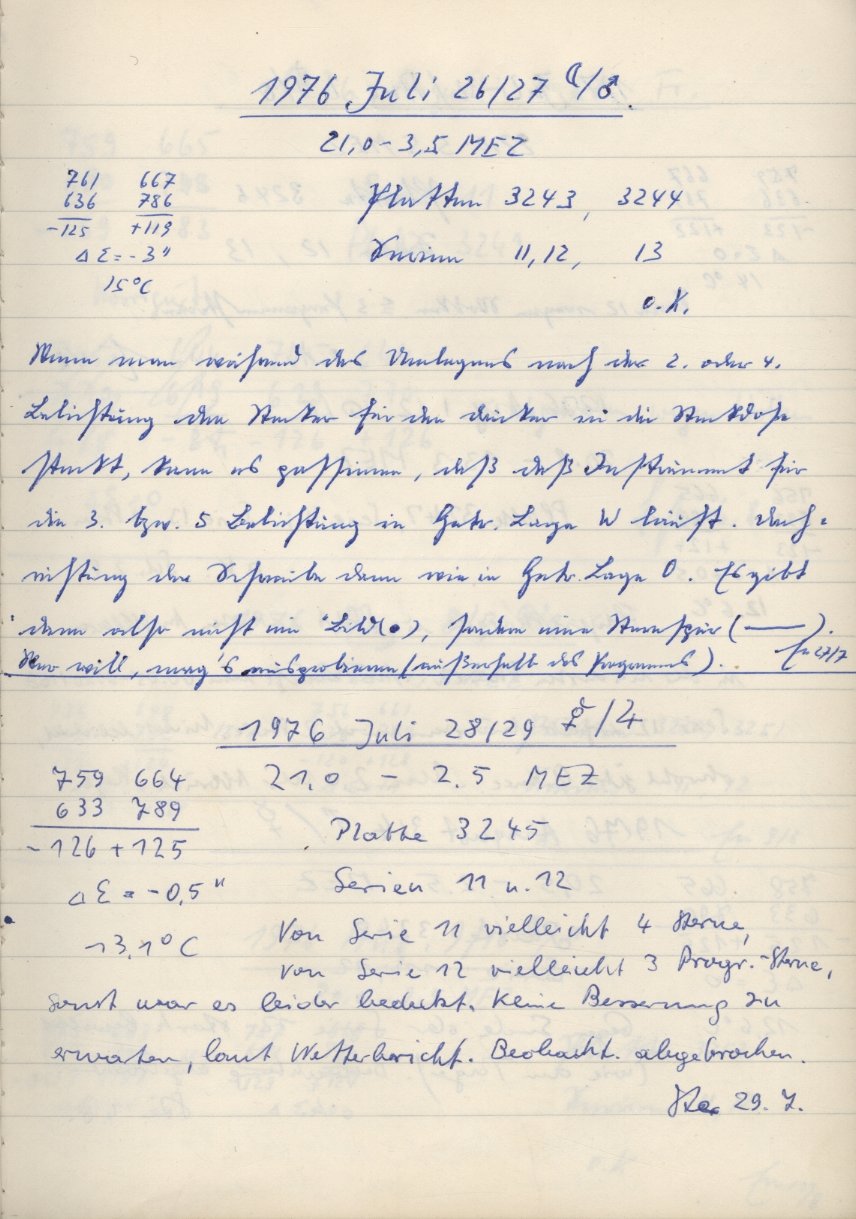 1976 Juli 26/27 ☾/♂.
21,0 - 3,5 MEZ
761 667
636 786
-125 +119
Δ Σ = - 3"
15°C
Platten 3243, 3244
Serien 11, 12, 13
o.K.
Wenn man während des Umlegens nach der 2. oder 4.
Belichtung den Stecker für den Drücker in die Steckdose
steckt, kann es passieren, daß daß Instrument für
die 3. bzw. 5 Belichtung in Gehr. Lage W läuft.
richtung der Schraube dann wie in Gehr. Lage O. Es gibt
dann also nicht ein Bild (•), sondern eine Sternspur (—).
Wer will, mag's ausprobieren (außerhalb des Programms). 27/7
1976 Juli 28/29 ☿/♃
759 664
633 789
-126 +125
Δ Σ = -0,5"
13,1°C
21,0 - 2.5 MEZ
Platte 3245
Serien 11 u. 12
Von Serie 11 vielleicht 4 Sterne,
von Serie 12 vielleicht 3 Progr.-Sterne,
sonst war es leider bedeckt. Keine Besserung zu
erwarten, laut Wetterbericht. Beobacht. abgebrochen.
29. 7.